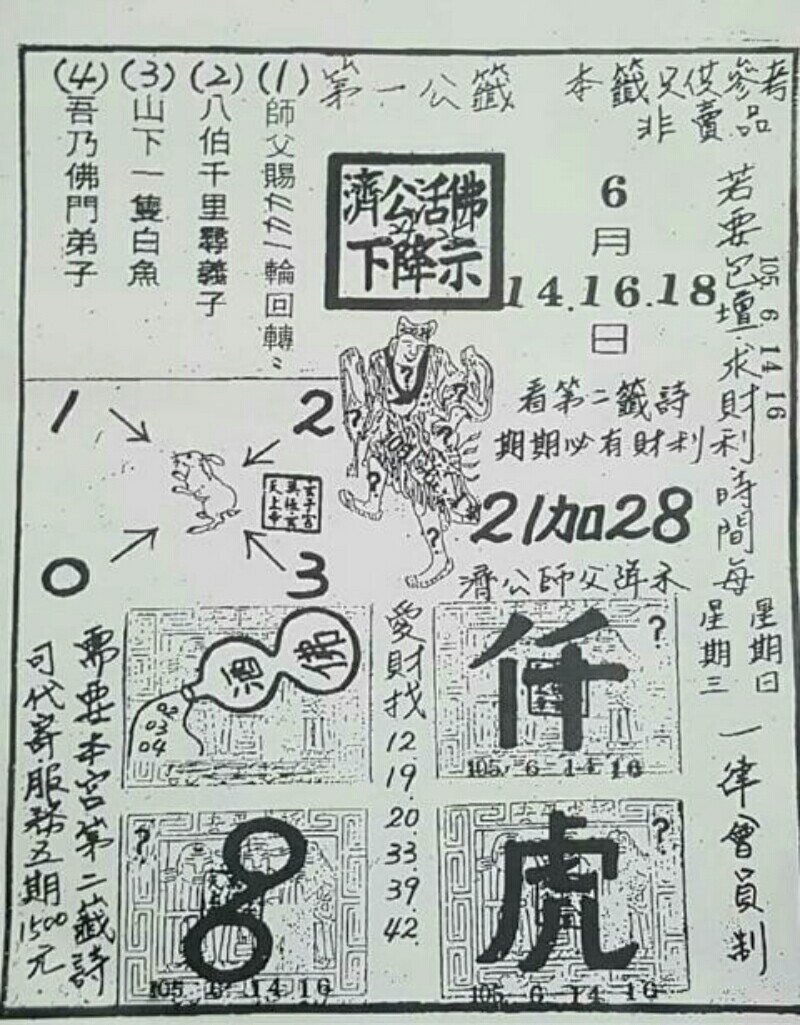 本籤只供參考
非賣品
第一公籤
(1)師父賜ㄊㄊ一輪回轉〃
(2)八伯千里尋義子
(3)山下一隻白魚
(4)吾乃佛門弟子
濟公活佛
下降示
6
月
14.16.18
日
105 6 14 16
若要包壇求財利時間每
星期日
星期三
一律會員制
看第二籤詩
期期必有財利
21加28
濟公師父降示
1
2
0
3
?
?
?
?
?
?
佛
酒
03
04
愛財找
12
19
20
33
39
42
仟
?
105 6 14 16
?
8
105 6 14 16
虎
?
105 6 14 16
需要本宮第二籤詩
可代寄服務五期1500元